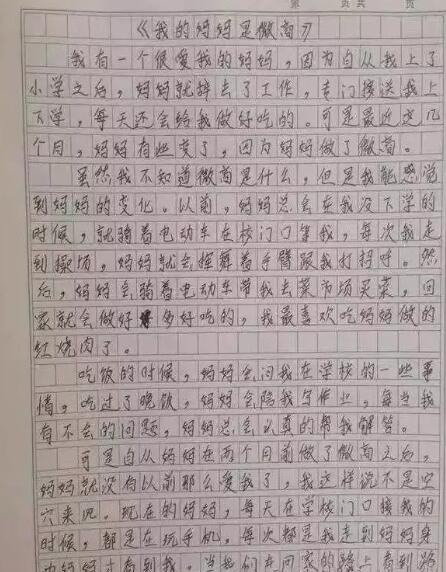 第 页 共 页
《我的妈妈是微商》
我有一个很爱我的妈妈，因为自从我上了
小学之后，妈妈就辞去了工作，专门接送我上
下学，每天还会给我做好吃的。可是最近这几
个月，妈妈有些变了，因为妈妈做了微商。
虽然我不知道微商是什么，但是我能感觉
到妈妈的变化。以前，妈妈总会在我没下学的
时候，就骑着电动车在校门口等我，每次我走
到操场，妈妈就会挥舞着手臂跟我打招呼。然
后，妈妈会骑着电动车带我去菜市场买菜，回
家就会做好多好吃的，我最喜欢吃妈妈做的
红烧肉了。
吃饭的时候，妈妈会问我在学校的一些事
情，吃过了晚饭，妈妈会陪我写作业，每当我
有不会的问题，妈妈总会认真的帮我解答。
可是自从妈妈在两个月前做了微商之后，
妈妈就没有以前那么爱我了，我这样说不是空
穴来风。现在的妈妈，每天在学校门口接我的
时候，都是在玩手机，每次都是我走到妈妈身
妈妈才看到我。当我们走回家的路上看到路